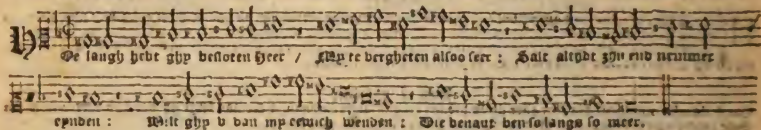 HOe langh hebt ghy besloten Heer / My te vergheten alsoo seer : Salt altydt zyn end nimmer
eynden : Wilt ghy v van my eewich wenden : Die benaut ben so langs so meer.